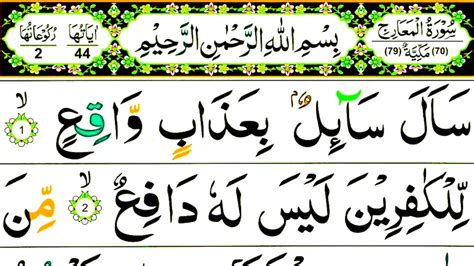 سُوْرَةُ الْمَعَارِجِ
(70) مَكِّيَّةٌ (79)
بِسْمِ اللّٰهِ الرَّحْمٰنِ الرَّحِيْمِ
اٰيَاتُهَا 44
رُكُوْعَاتُهَا 2
سَاَلَ سَآئِلٌۢ بِعَذَابٍ وَّاقِعٍ ۙ 1
لِّلْكٰفِرِيْنَ لَيْسَ لَهٗ دَافِعٌ ۙ 2 مِّنَ